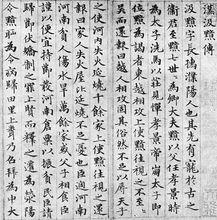 汲黯傳
汲黯字長孺濮陽人也其先有寵於古之
衛君至黯七世世為卿大夫黯以父任孝景時
為太子洗馬以莊見憚孝景帝崩太子即
位黯為謁者東越相攻上使黯往視之不至
至吳而還報曰越人相攻固其俗然不足以辱天子
之使河內失火延燒千餘家上使黯往視之還
報曰家人失火屋比延燒不足憂也臣過河南
河南貧人傷水旱萬餘家或父子相食臣
謹以便宜持節發河南倉粟以振貧民臣請
歸節伏矯制之罪上賢而釋之遷為滎陽
令黯恥為令病歸田里上聞乃召拜為中